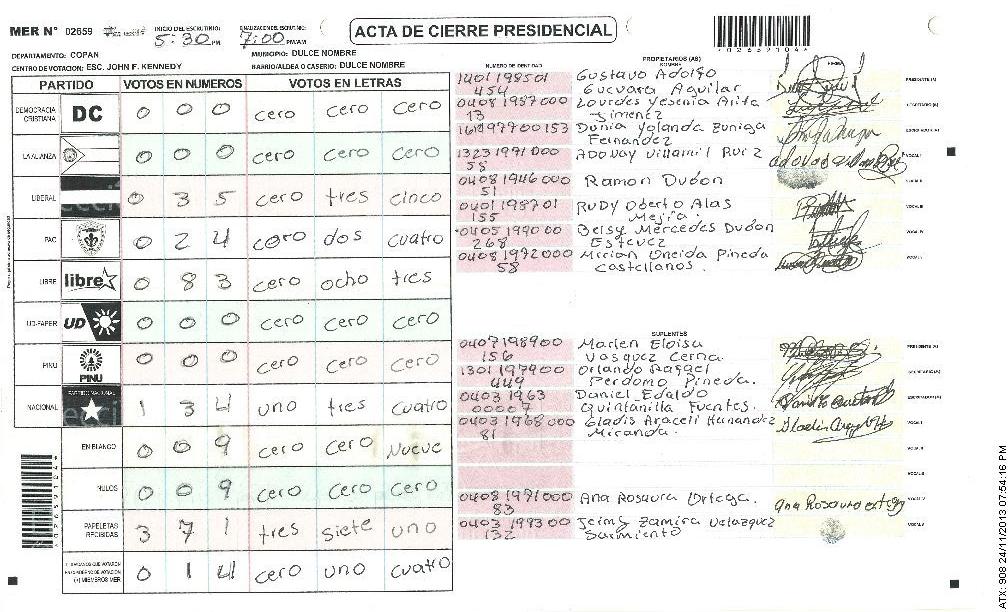 MER N° 02659 INICIO DEL ESCRUTINIO: 5:30 PM FINALIZACION DEL ESCRUTINIO: 7:00 PM/AM
ACTA DE CIERRE PRESIDENCIAL
DEPARTAMENTO: COPAN MUNICIPIO: DULCE NOMBRE
CENTRO DE VOTACION: ESC. JOHN F. KENNEDY BARRIO/ALDEA O CASERIO: DULCE NOMBRE
PARTIDO VOTOS EN NUMEROS VOTOS EN LETRAS
DEMOCRACIA CRISTIANA DC 0 0 0 cero cero cero
LA ALIANZA 0 0 0 cero cero cero
LIBERAL 0 3 5 cero tres cinco
PAC 0 2 4 cero dos cuatro
LIBRE libre 0 8 3 cero ocho tres
UD-FAPER UD 0 0 0 cero cero cero
PINU PINU 0 0 0 cero cero cero
NACIONAL PARTIDO NACIONAL 1 3 4 uno tres cuatro
EN BLANCO 0 0 9 cero cero Nueve
NULOS 0 0 9 cero cero cero
PAPELETAS RECIBIDAS 3 7 1 tres siete uno
(+) MIEMBROS MER 0 1 4 cero uno cuatro
NUMERO DE IDENTIDAD PROPIETARIOS (AS) NOMBRE FIRMA
1401 198501 454 Gustavo Adolfo Guevara Aguilar PRESIDENTE (A)
0408 1987000 13 Lourdes Yesenia Arita Jimenez SECRETARIO (A)
Dunia Yolanda Zuniga Fernandez ESCRUTADOR (A)
1323 1971000 58 Adovay Villamil Ruiz VOCAL I
0408 1946 000 51 Ramon Dubon VOCAL II
0401 198701 155 Rudy Oberto Alas Mejia. VOCAL III
0405 1990 00 268 Belsy Mercedes Dubon Estevez VOCAL IV
0408 1972000 58 Mirian Oneida Pineda Castellanos. VOCAL V
SUPLENTES
0407 198900 156 Marlen Eloisa Vasquez Cerna PRESIDENTE (A)
1301 197900 449 Orlando Rafael Perdomo Pineda. SECRETARIO (A)
0403 1963 00007 Daniel Edaldo Quintanilla Fuentes. ESCRUTADOR (A)
0403 1968 000 81 Gladis Araceli Hernandez Miranda. VOCAL I
VOCAL II
VOCAL III
0408 1971000 83 Ana Rosaura Ortega. VOCAL IV
0403 1993 00 132 Jeimy Zamira Velazquez Sarmiento VOCAL V
ATX: 908 24/11/2013 07:54:16 PM